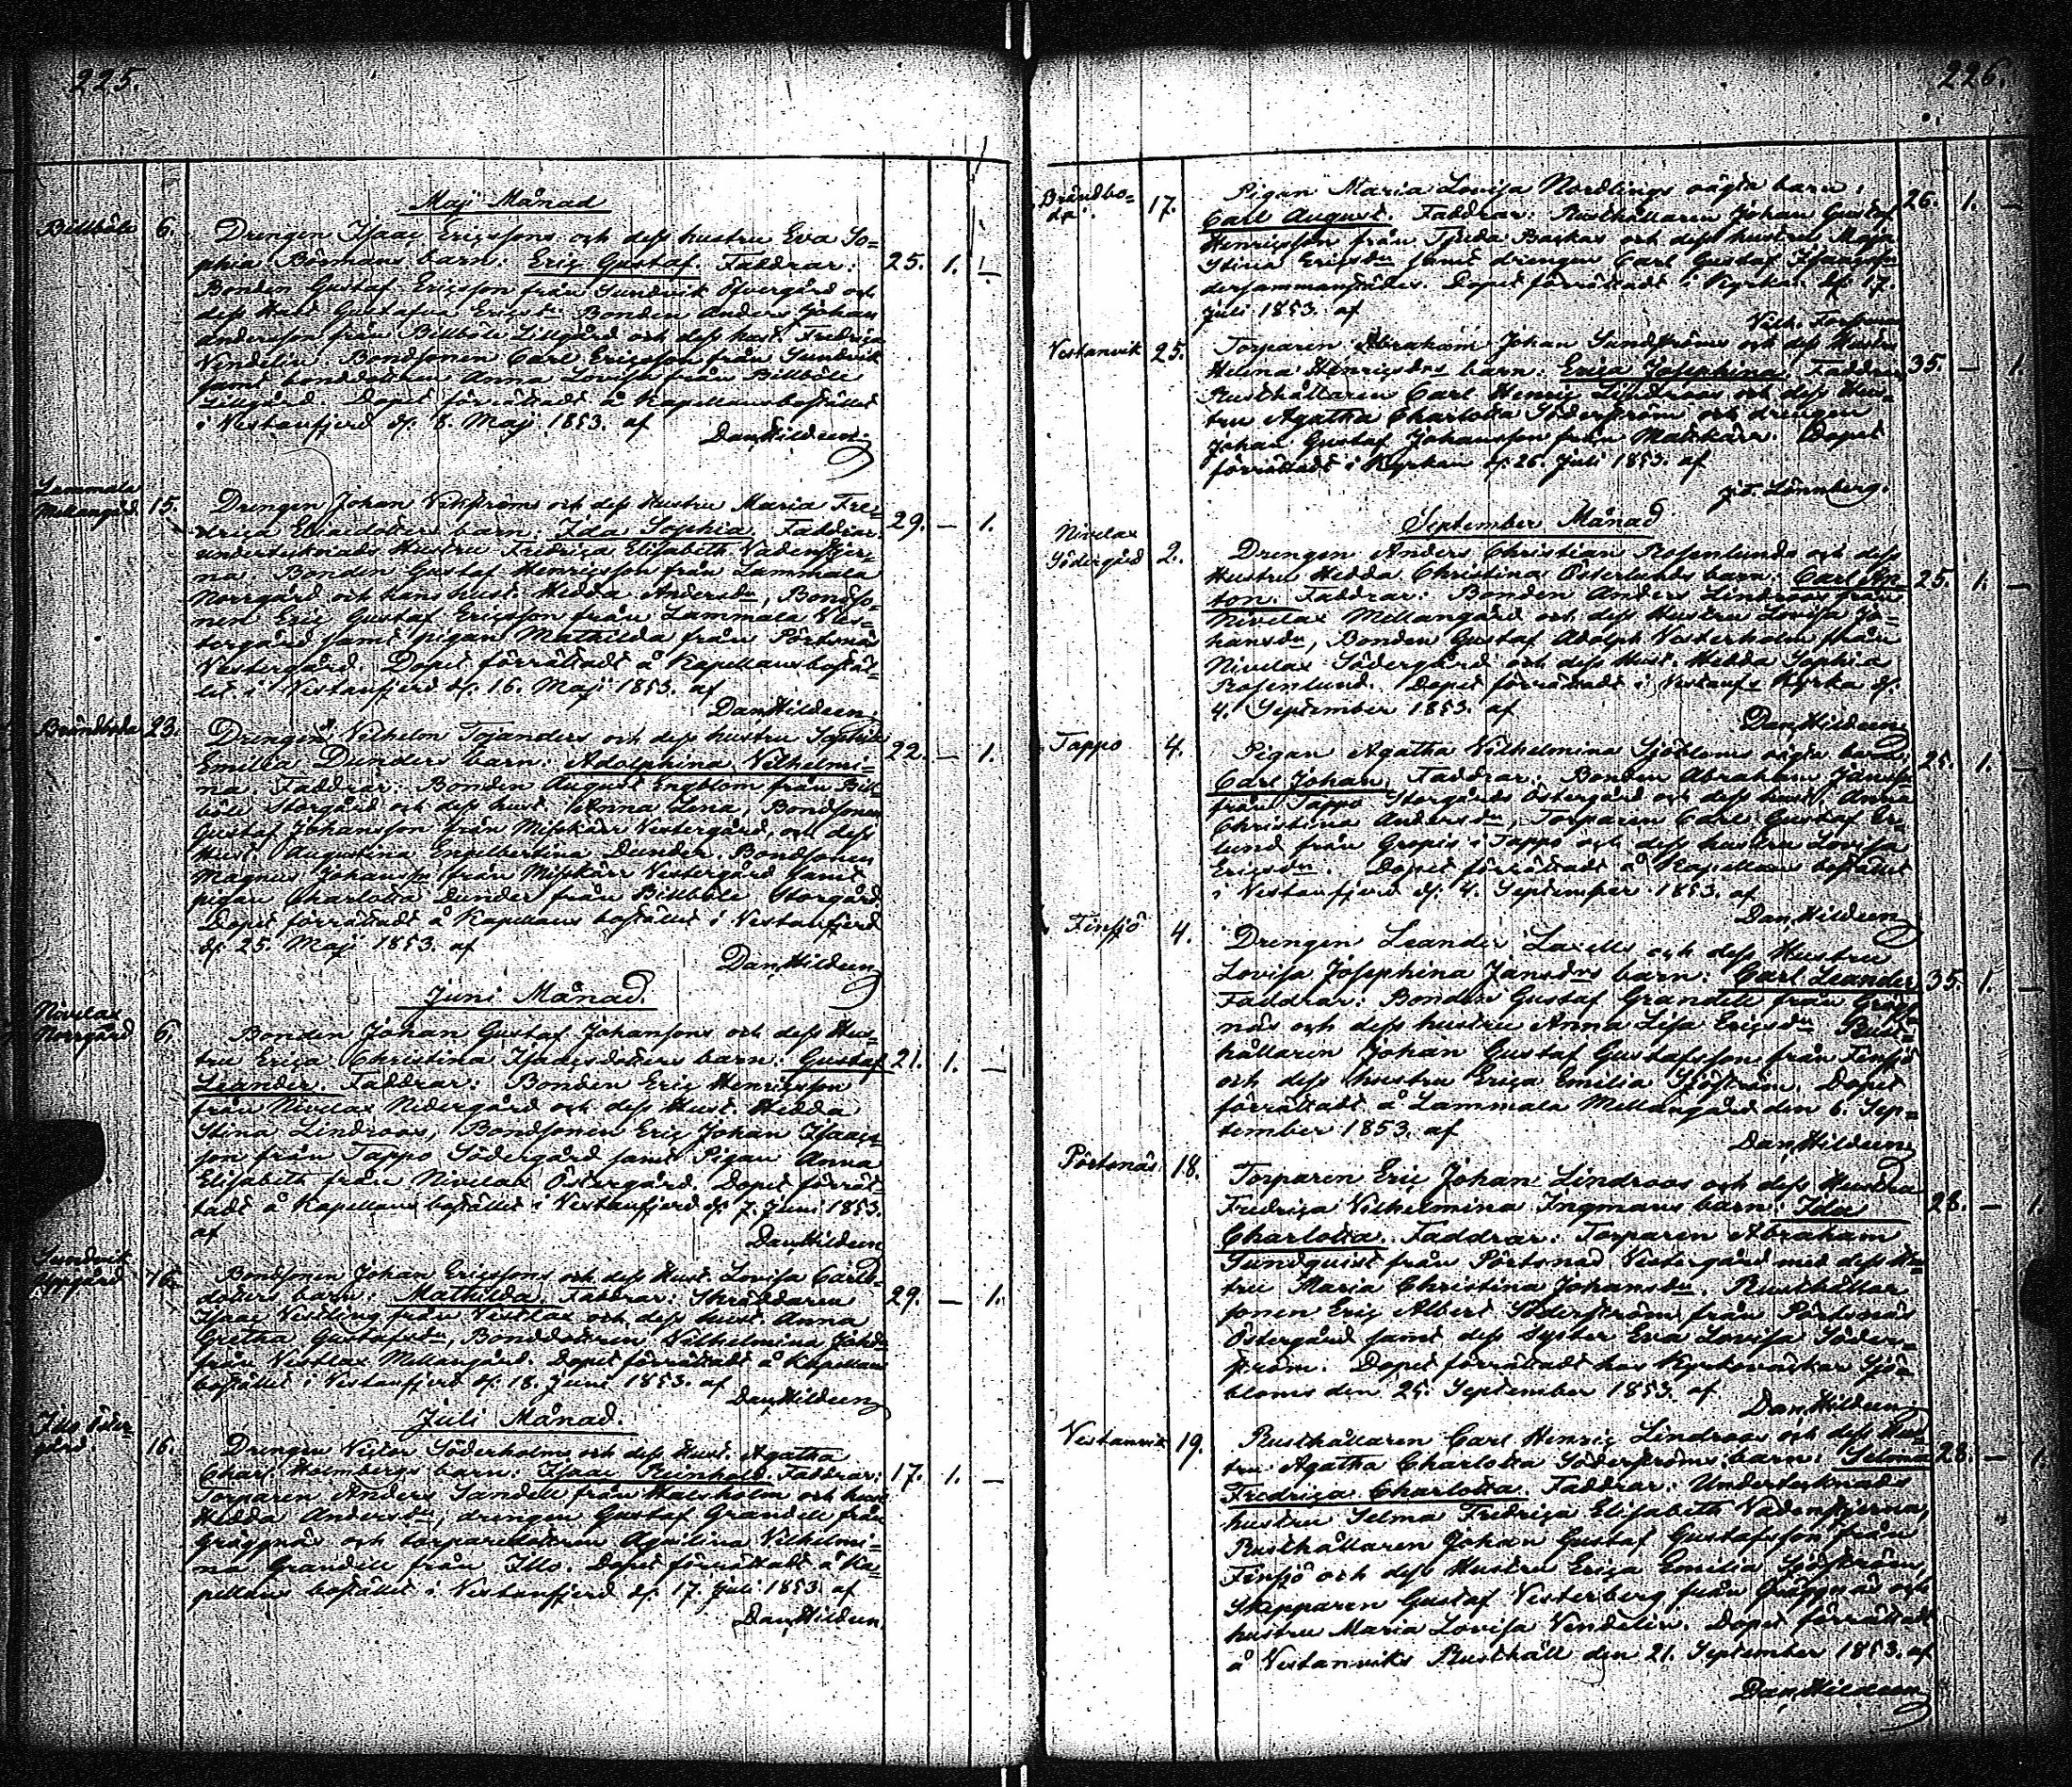 225.
Maji Månad
Billböle 6. Drengen Isaac Ericssons och dess hustru Eva So=
phia Bömans barn: Eric Gustaf Faddrar: 25. 1. –
Bonden Gustaf Ericsson från Sundvik Öfvergård och
dess Hust Gustafva Ericsdr Bonden Anders Johan
Andersson från Billböle Lillgård och dess hust. Fredrica
Vendelin. Bondsonen Carl Ericsson från Sundvik
samt bonddottren Anna Lovisa från Billböle
Lillgård. Dopet förrättadt å Kapellansbostället
i Vestanfjerd d. 8. Maji 1853. af
Dan. Hildeen
Lammala
Mellangård 15. Drengen Johan Vikström och dess Hustru Maria Fre=
drica barn: Ida Sophia Faddrar: 29. – 1.
undertecknads Hustru Fredrica Elisabeth Vadenstjer=
na. Bonden Gustaf Henricsson från Lammala
Norrgård och hans hust. Hedda Andersdr, Bondso=
nen Eric Gustaf Ericsson från Lammala Ves=
tergård samt pigan Mathilda från Pörtsnäs
Vestergård. Dopet förrättadt å Kapellansbostäl=
let i Vestanfjerd d. 16. Maji 1853. af
Dan. Hildeen
Brändboda 23. Drengen Vilhelm Tojanders och dess hustru Sophia
Emilia Dunders barn: Adolphina Vilhelmi= 22. – 1.
na. Faddrar: Bonden August Engblom från Bill=
böle Storgård och dess hust. Anna Lena, Bondsonen
Gustaf Johansson från Misskärr Vestergård, och dess
Hust. Augustina Engelbertina Dunder. Bondsonen
Magnus Johansson från Misskärr Vestergård samt
pigan Charlotta Dunder från Billböle Storgård
Dopet förrättadt å Kapellans bostället i Vestanfjerd
d. 25. Maji 1853. af
Dan. Hildeen
Juni Månad.
Nivelax
Norrgård 6. Bonden Johan Gustaf Johansons och dess Hus=
tru Erica Christina Isacsdotters barn: Gustaf 21. 1. –
Leander. Faddrar: Bonden Eric Henricsson
från Nivelax Nedergård och dess Hust. Hedda
Stina Lindroos, Bondsonen Eric Johan Isaacs=
son från Tappo Södergård samt Pigan Anna
Elisabeth från Nivelax Östergård. Dopet förrät=
tadt å Kapellans bostället i Vestanfjerd d. 7. Juni 1853.
af
Dan. Hildeen
Sundvik
Uppgård 16. Bondsonen Johan Ericssons och dess Hust. Lovisa Carls=
dotters barn: Mathilda. Faddrar: Skräddaren 29. – 1.
Isaac Vestling från Vestlax och dess hust. Anna
Gretha Gustafsdr, Bonddottren Vilhelmina Johsdr
från Vestlax Mellangård. Dopet förrättadt å Kapellans
bostället i Vestanfjerd d. 18. Juni 1853. af
Dan. Hildeen
Juli Månad.
Illo Öster=
gård 16. Drengen Victor Söderholms och dess Hust. Agatha
Charl. Holmbergs barn: Isaac Reinhold. Faddrar: 17. 1. –
Torparen Anders Sandell från Halsholm och hust
Hedda Andersdr, drengen Gustaf Grandell från
Gräggnäs och torparedottren Aqvilina Vilhelmi=
na Grandell från Illo. Dopet förrättadt å Ka=
pellans bostället i Vestanfjerd d. 17. Juli 1853. af
Dan. Hildeen
226.
Brändbo=
da. 17. Pigan Maria Lovisa Nordlings oägta barn: 26. 1. –
Carl August. Faddrar: Rusthållaren Johan Gustaf
Henricsson från Tjuda Backas och dess hustru Maja
Stina Ericsdr samt drengen Carl Gustaf Isaacsson
dersammanstädes. Dopet förrättadt i Kyrkan d. 17.
Juli 1853. af
Vilh.
Vestanvik 25. Torparen Abraham Johan Sundströms och dess Hustru
Helena Henricsdrs barn: Erica Josephina. Faddrar 35. – 1.
Rusthållaren Carl Henric Lindroos och dess Hus=
tru Agatha Charlotta Söderström och drengen
Johan Gustaf Johansson från Matkärr. Dopet
förrättadt i Kyrkan d. 26. Juli 1853. af
Lönnberg.
September Månad
Nivelax
Södergård 2. Drengen Anders Christian Rosenlunds och dess
Hustru Hedda Christina Österlunds barn: Carl An= 25. 1. –
ton. Faddrar: Bonden Anders Lindroos från
Nivelax Mellangård och dess Hustru Lovisa Jo=
hansdr, Bonden Gustaf Adolph Vesterholm från
Nivelax Södergård och dess Hust. Hedda Sophia
Rosenlund. Dopet förrättadt i Vestanf:s Kyrka d.
4. September 1853. af
Dan. Hildeen
Tappo 4. Pigan Agatha Vilhelmina Sjöbloms oägta barn
Carl Johan. Faddrar: Bonden Abraham Jansson 25. 1. –
från Tappo Storgårds Östergård och dess hust. Anna
Christina Andersdr, Torparen Carl Gustaf Er=
lund från Gropis i Tappo och dess hustru Lovisa
Ericsdr. Dopet förrättadt å Kapellans bostället
i Vestanfjerd d. 4. September 1853. af
Dan. Hildeen
Finsjö 4. Drengen Leander Laxells och dess Hustru
Lovisa Josephina Jansdrs barn: Carl Leander 35. 1. –
Faddrar: Bonden Gustaf Grandell från
näs och dess hustru Anna Lisa Ericsdr Rust=
hållaren Johan Gustaf Gustafsson från Finsjö
och dess hustru Erica Emilia Sjöström. Dopet
förrättadt å Lammala Mellangård den 6. Sep=
tember 1853. af
Dan. Hildeen
Pörtsnäs 18. Torparen Eric Johan Lindroos och dess Hustru
Fredrica Vilhelmina Ingmans barn: Ida 28. – 1.
Charlotta. Faddrar: Torparen Abraham
Sundquist från Pörtsnäs Vestergård med dess Hs=
tru Maria Christina Johansdr. Rusthållar
sonen Eric Albert Söderström från Pörtsnäs
Östergård samt dess Syster Eva Lovisa Söder=
ström. Dopet förrättadt hos Kyrkovärkar Sjö=
bloms den 25. September 1853. af
Dan. Hildeen
Vestanvik 19. Rusthållaren Carl Henric Lindroos och dess Hus=
tru Agatha Charlotta Söderströms barn: Selma 28. – 1.
Fredrica Charlotta. Faddrar: Undertecknads
hustru Selma Fredrica Elisabeth Vadenstjerna,
Rusthållaren Johan Gustaf Gustafsson från
Finsjö och dess Hustru Erica Emilia Sjöström,
Skepparen Gustaf Vesterberg från Gräggnäs och
hustru Maria Lovisa Vendelin. Dopet förrättadt
å Vestanviks Rusthåll den 21. September 1853. af
Dan. Hildeen